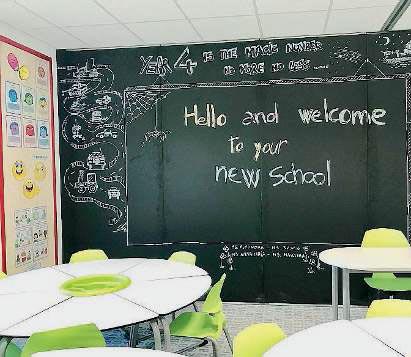 YEAR 4 IS THE MAGIC NUMBER
NO MORE NO LESS ....
Hello and welcome
to your
new School